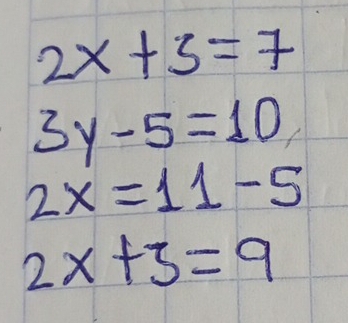 2x+3=7
3y-5=10
2x=11-5
2x+3=9